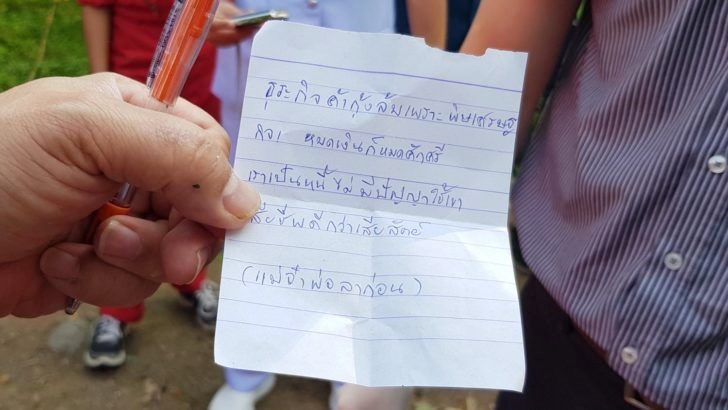 ธุระกิจค้ากุ้งล้มเพราะพิษเศรษฐ
กิจ! หมดเงินก็หมดศักศรี
เราเป็นหนี้ ไม่มีปัญญาใช้เขา
เสียชีพดีกว่าเสียสัตย์
(แม่จ๋าพ่อลาก่อน)